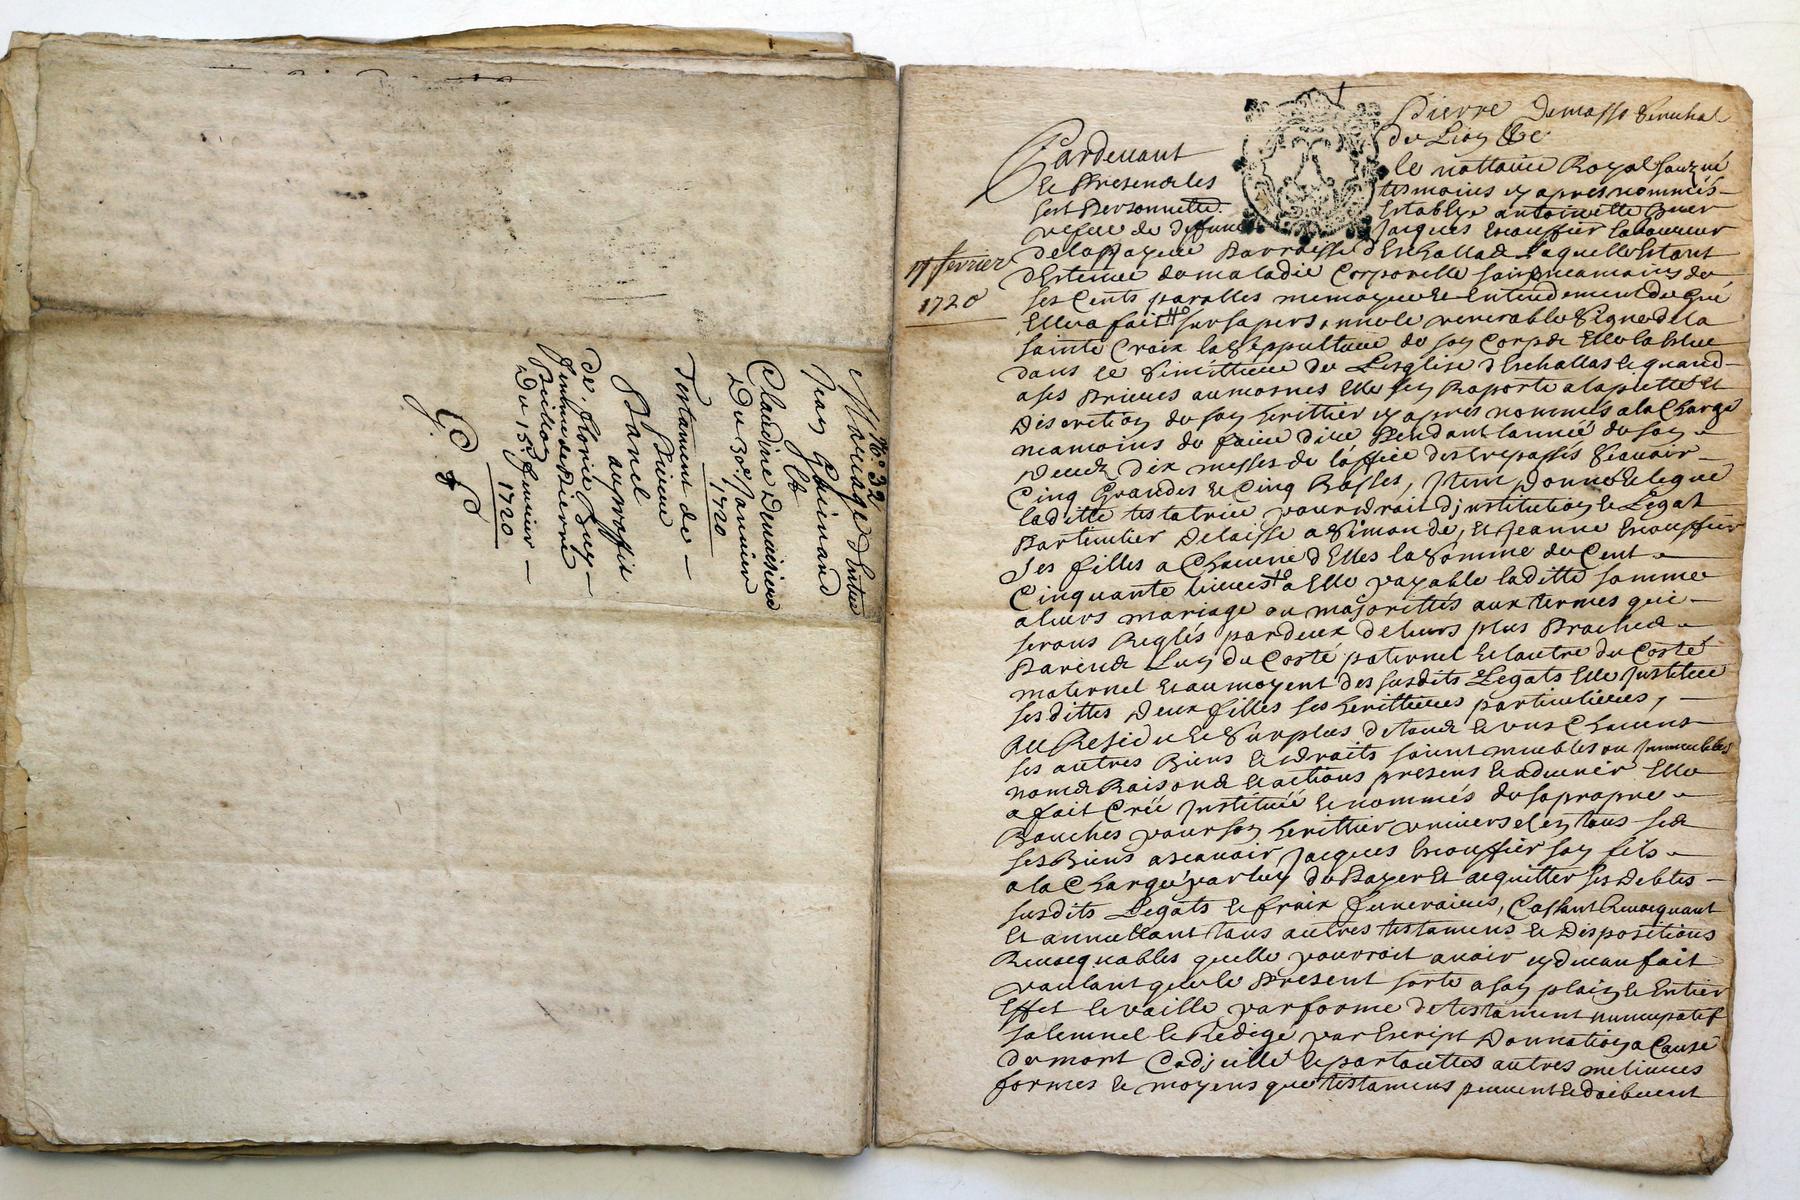 No. 32
Mariage d'Entre
Jean Guinand
Et
Claudine Demaisiere
Du 30e Janvier
1720
Testament de
Pierre
Banel
au proffit
de Florie Guy
femme de Pierre
Du 15e fevrier
1720
G
Pierre Demasso Senechal
de Lion &c
Pardevant le nottaire Royal souzné
Et Presence les tesmoins cy apres nommés
sest Personnelle Establye antoinette
vefue de deffunct Jacques Escouffier laboureur
de la paroisse d'Eschallas Laquelle Estant
17 fevrier
1720
détenue de maladie Corporelle saine neamoins de
ses Cents parolles memoyre Et Entendement De Gré
Elle a fait sur sa personne le venerable Signe de la
sainte Croix la Seppulture de son Corps Elle la Elue
dans le Simittiere de Lesglise d'Eschallas Et quand
a ses Prieres aumosnes Elle sen Raporte a la pietté Et
Discretion de son herittier cy apres nommés a la Charge
neamoins de faire dire Pendant lannée de son
Deceds dix messes de l'office des trepassés Scavoir
Cinq Grandes Et Cinq Basses, Item Donne Et legue
laditte testatrice pour droit d'institution Et Legat
Particulier Delaisse a Simonde, Et Jeanne Escouffier
ses filles a Chacune d'Elles la Somme de Cent
Cinquante livres a Elle payable laditte somme
a leurs mariage ou majorittés aux termes qui
serons Reglés par deux de leurs plus Proches
Parends Lun du Costé paternel Et lautre du Costé
maternel Et au moyent des susdits Legats Elle Institue
ses dittes Deux filles ses herittieres particulieres,
Au Residu Et Surplus de tous Et uns Chacuns
ses autres Biens Et droits soient meubles ou Immeubles
noms Raisons Et actions presens Et advenir Elle
a fait Créé Instituée Et nommés de sa propre
Bouches pour son herittier universel en tous ses
ses Biens a scavoir Jacques Escouffier son fils
a la Charge par luy de Payer Et acquitter ses Debtes
susdits Legats Et fraix funeraires, Cassant Revocquant
Et annullant tous autres testamens Et Dispositions
Revocquables quelle pourroit avoir cy devan fait
voulant que le Present sorte a son plain Et Entier
Effet Et vaille par forme de testament nuncupatif
solemnel Et Redigé par Escript Donnation a Cause
de mort Codicille Et par touttes autres melieures
formes Et moyens que testamens peuvent Et doibvent